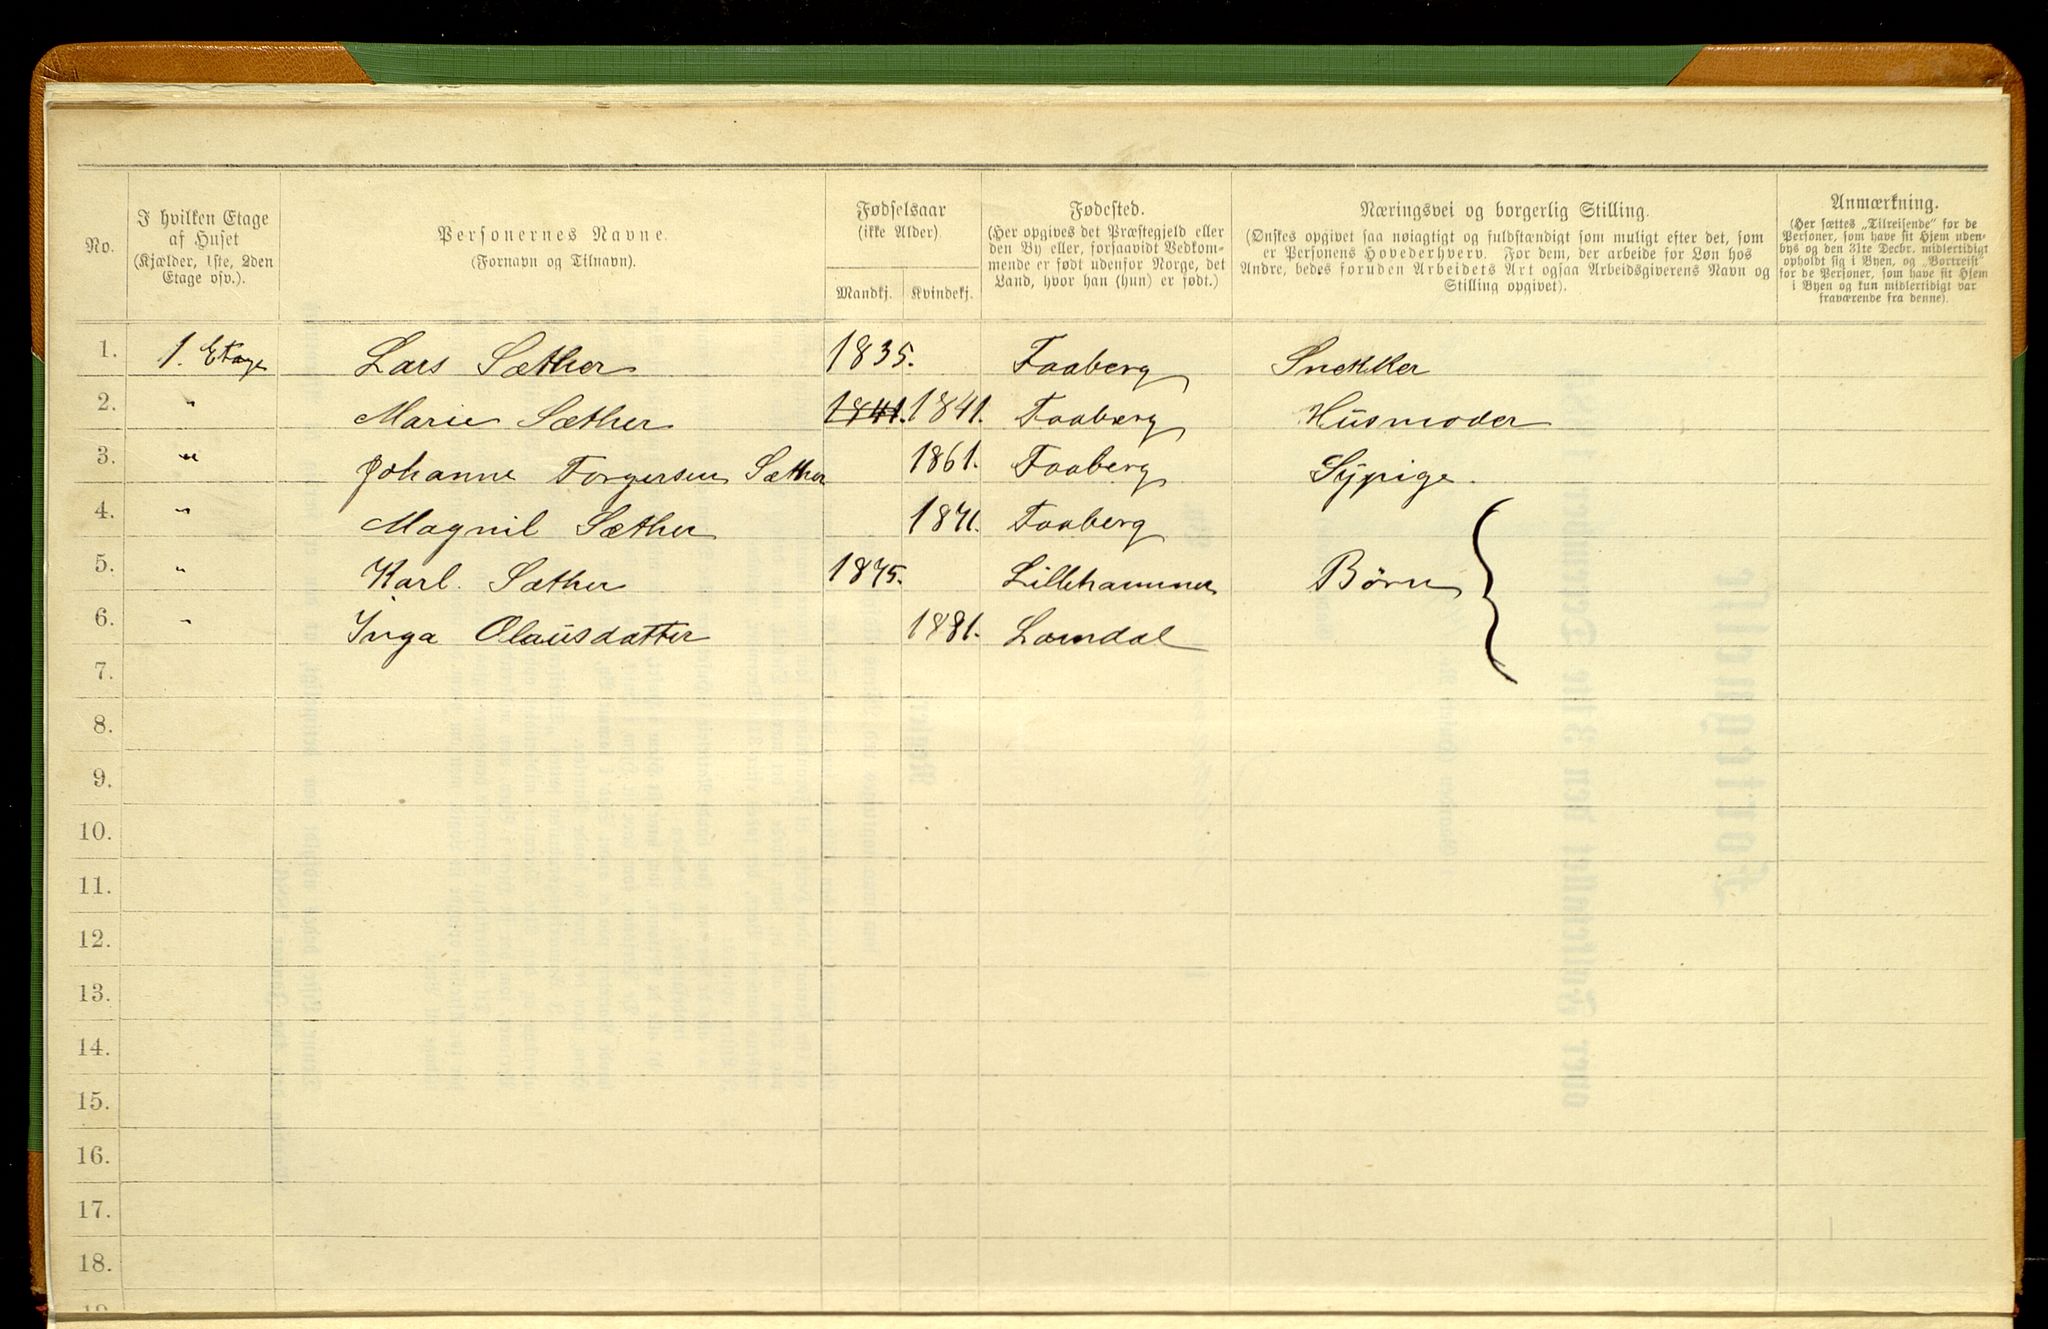 No.
I hvilken Etage af Huset
(Kjælder, 1ste, 2den Etage osv.).
Personernes Navne.
(Fornavn og Tilnavn).
Fødselsaar
(ikke Alder).
Mandkj. Kvindekj.
Fødested.
(Her opgives det Præstegjeld eller
den By eller, forsaavidt Vedkom-
mende er født udenfor Norge, det
Land, hvor han (hun) er født.)
Næringsvei og borgerlig Stilling.
(Ønskes opgivet saa nøiagtigt og fuldstændigt som muligt efter det, som
er Personens Hovederhverv. For dem, der arbeide for Løn hos
Andre, bedes foruden Arbeidets Art ogsaa Arbeidsgiverens Navn og
Stilling opgivet).
Anmærkning.
(Her sættes „Tilreisende" for de
Personer, som have sit Hjem uden-
bys og den 31te Decbr. midlertidigt
opholdt sig i Byen, og „Bortreist"
for de Personer, som have sit Hjem
i Byen og kun midlertidigt var
fraværende fra denne).
1. 1. Etage Lars Sæther 1835. Faaberg Snekker
2. " Marie Sæther 1841. 1841. Faaberg Husmoder
3. " Johanne Torgersen Sæther 1861. Faaberg Sypige.
4. " Magnil Sæther 1871. Faaberg
5. " Karl. Sæther 1875. Lillehammer Børn
6. " Inga Olausdatter 1881. Lomdal
7.
8.
9.
10.
11.
12.
13.
14.
15.
16.
17.
18.